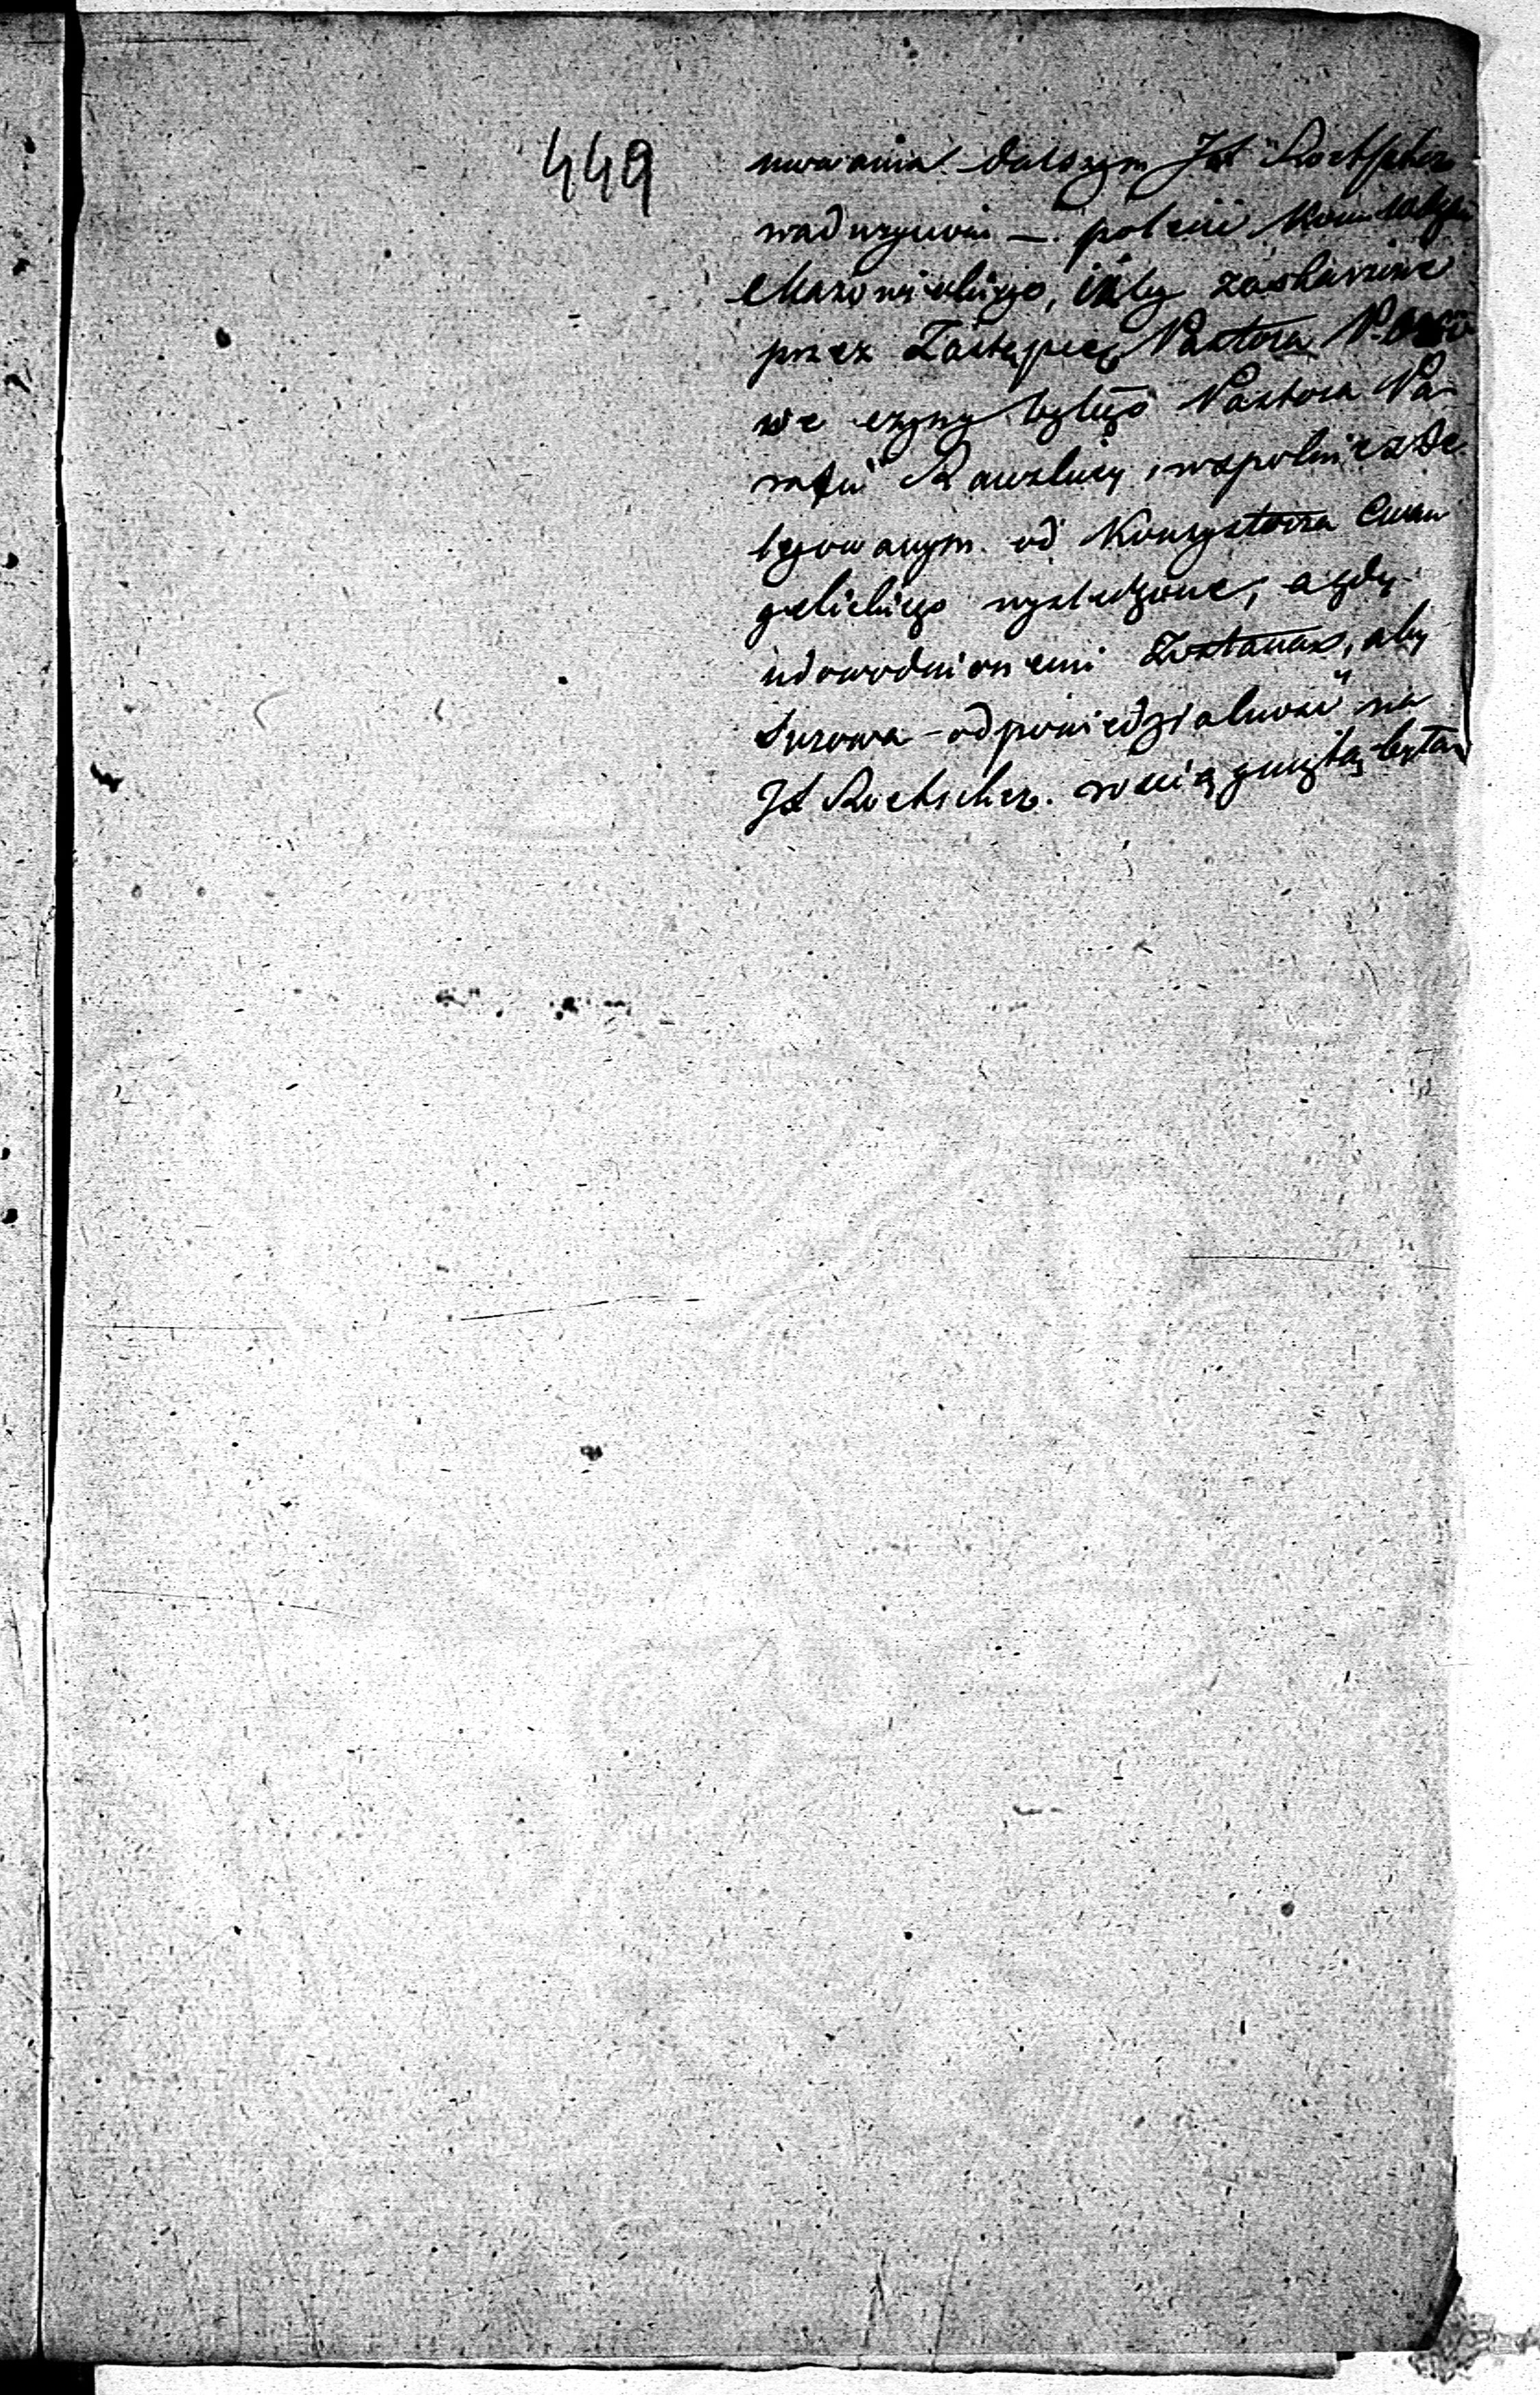 449
nuwania dalszym JX Roetscher
nadużyciom — polecić Kommissyi
Mazowieckiego, iżby zaskarżone
przez Zastępcę Pastora
we czyny byłego Pastora Pa-
rafii Rawskiey, wspolnie z De-
legowanym od Konsystorza Ewan
gelickiego wyśledzone, a gdy
udowodnionemi zostaną, aby
surowa odpowiedzialność na
JX Roetscher. rościągniętą była